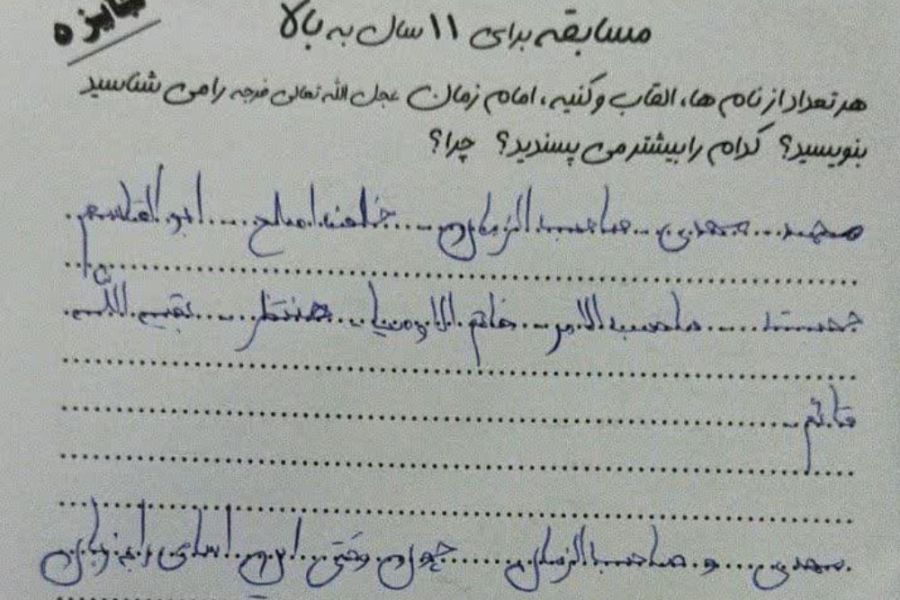 جایزه
مسابقه برای ۱۱ سال به بالا
هر تعداد از نام ها، القاب و کنیه، امام زمان عجل الله تعالی فرجه را می شناسید
بنویسید؟ کدام را بیشتر می پسندید؟ چرا؟
محمد... مهدی... صاحب الزمان... خلف صالح... ابوالقاسم
حجت... صاحب الامر... خاتم الاوصیا... منتظر... بقیه اللّه
قائم
مهدی... و صاحب الزمان... چون وقتی این اسامی را به زبان